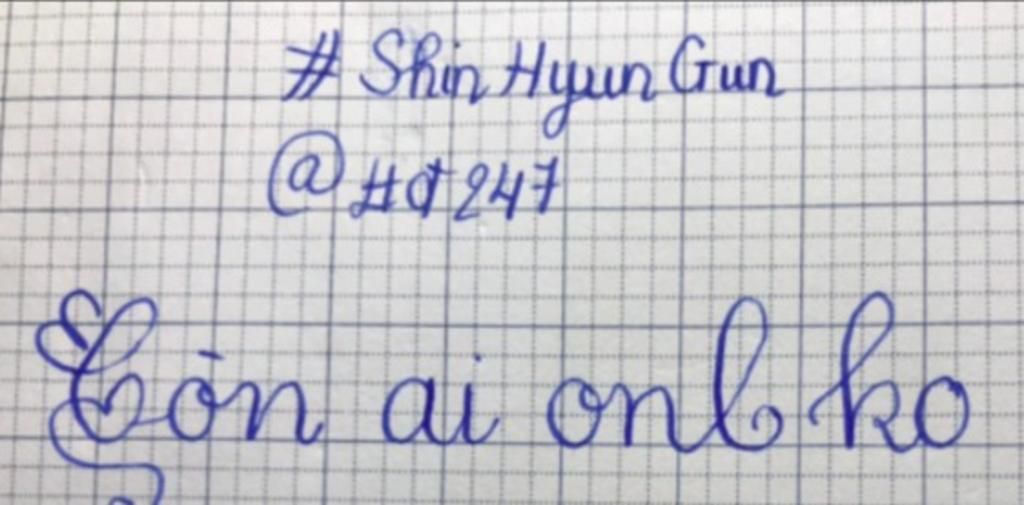 # Shin Hyun Gun
@ #đ247
Còn ai onl ko